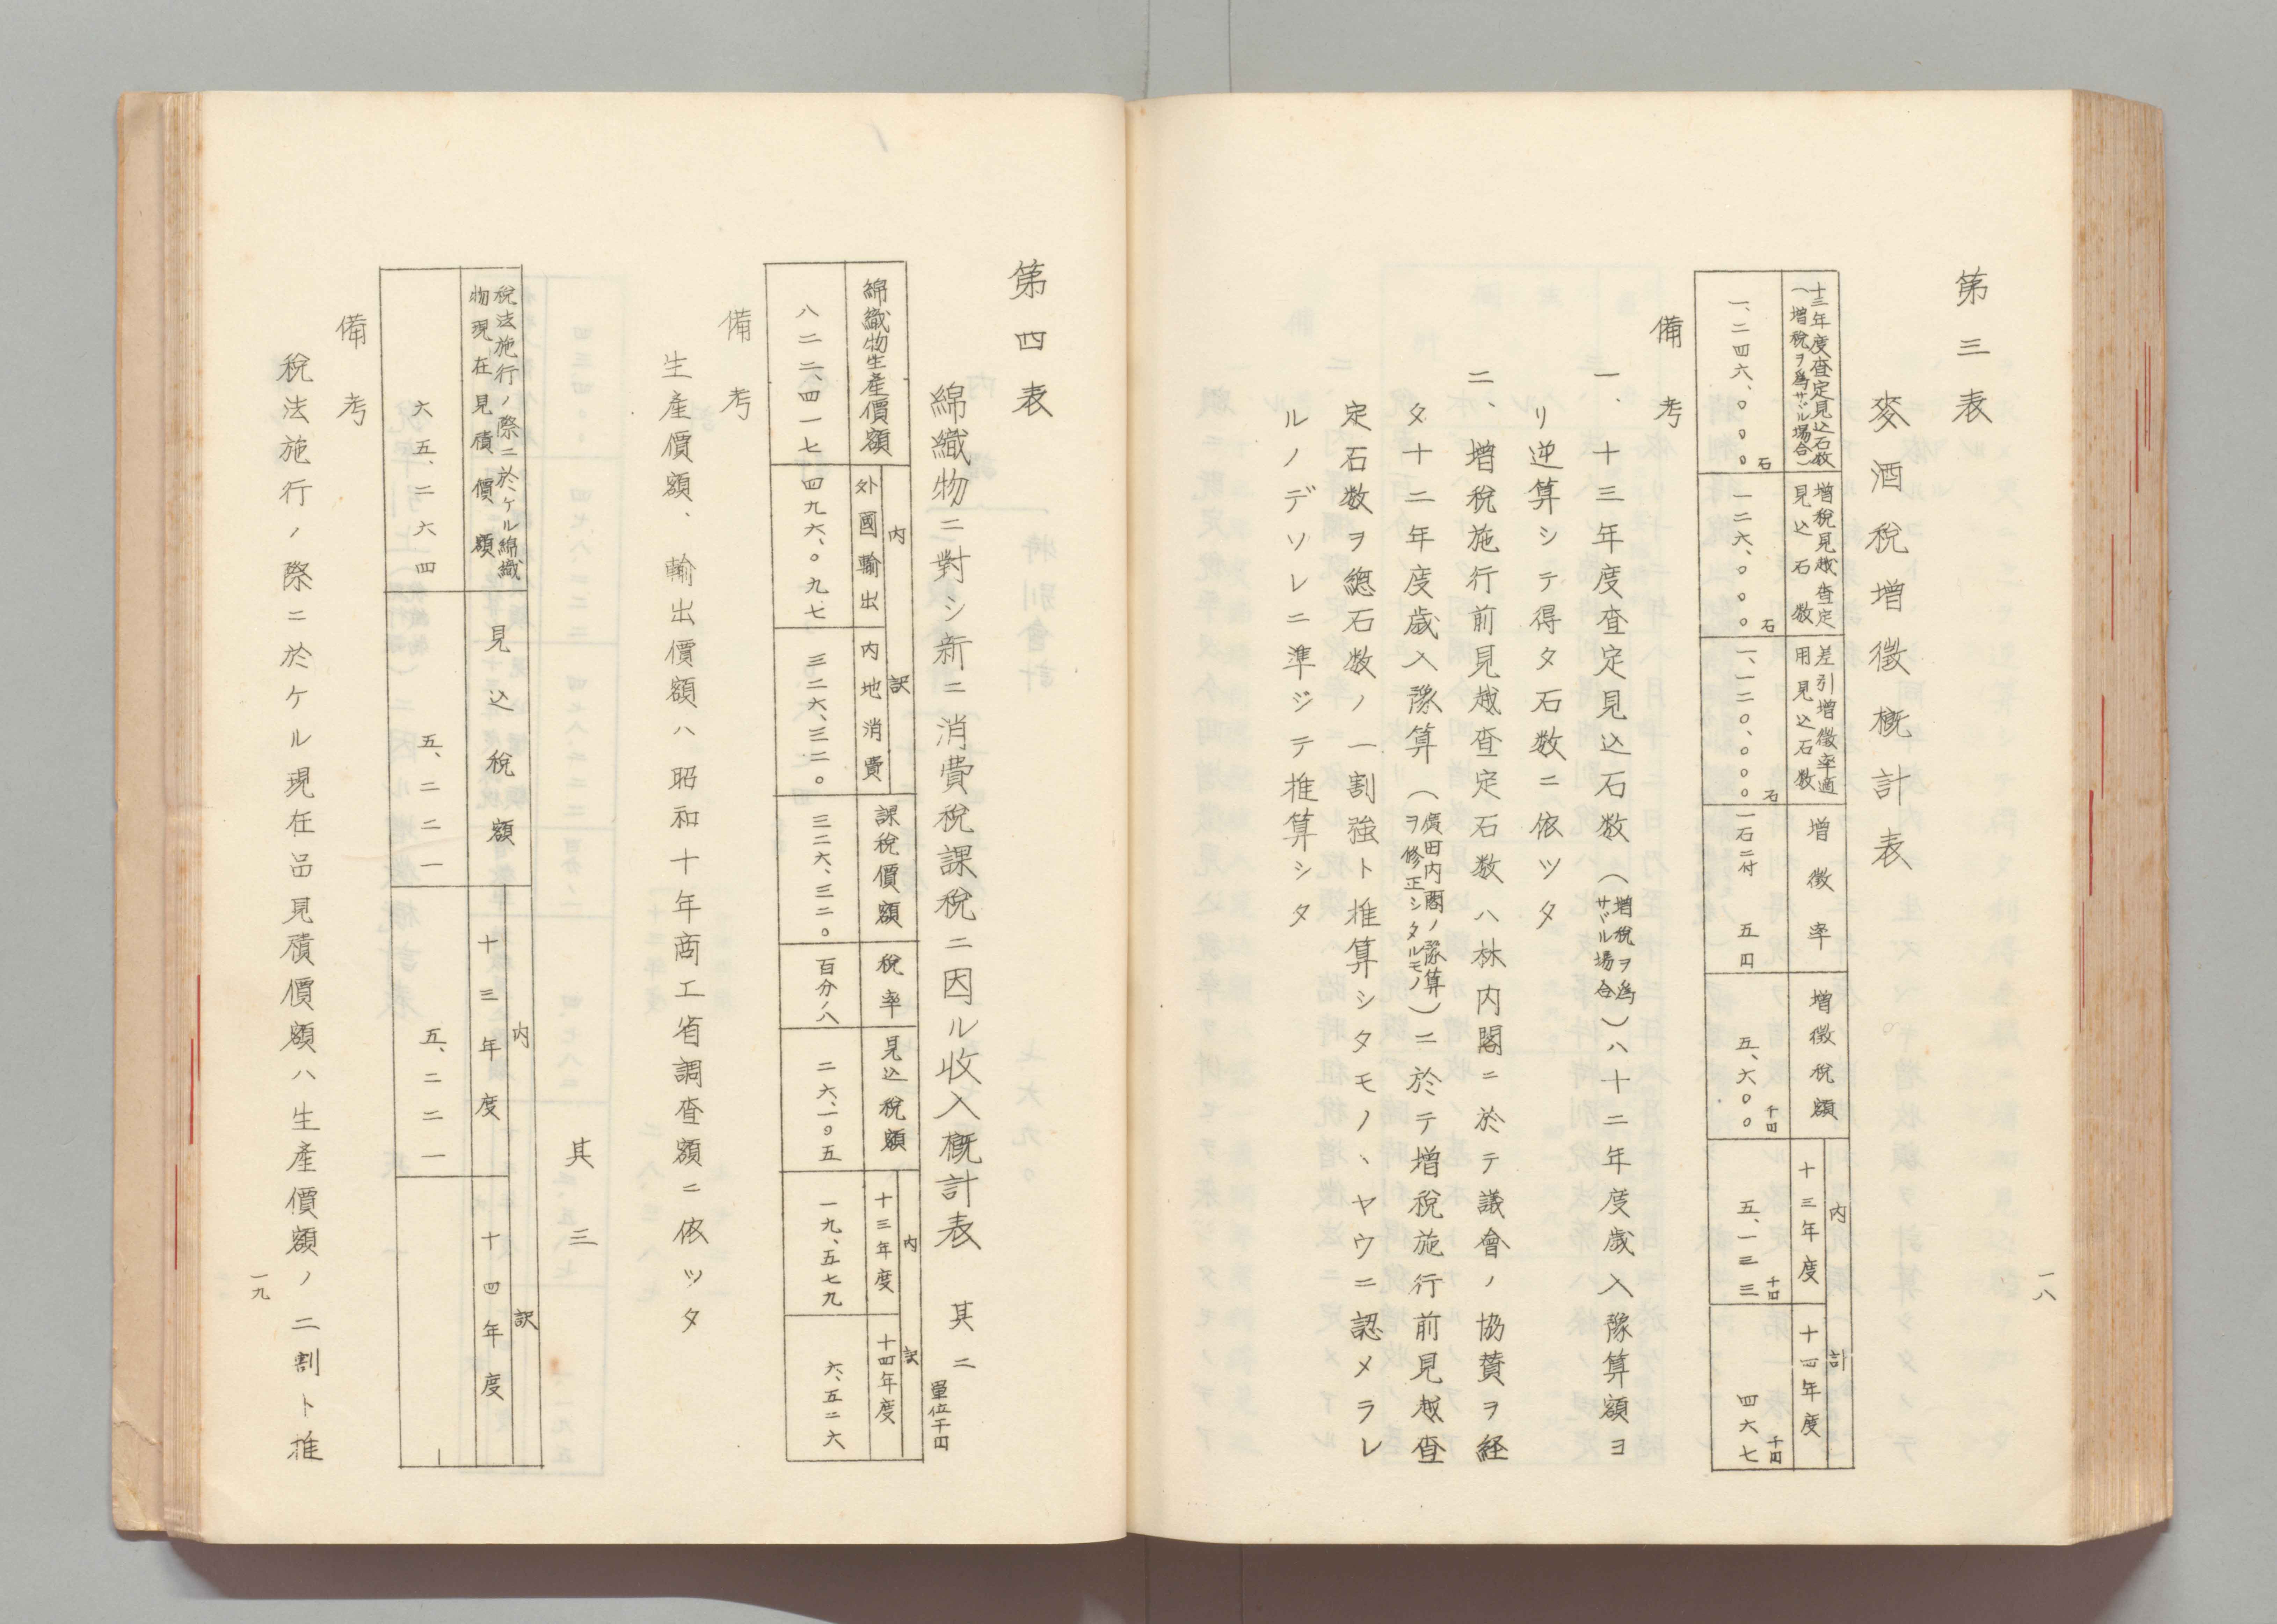 第三表
麥酒税増徴概計表
十三年度査定見込石数
(増税ヲ爲サヾル場合)
一、二四六、〇〇〇石
増税見越査定
見込石数
一二六、〇〇〇石
差引増徴率適
用見込石数
一、一二〇、〇〇〇石
増徴率
一石ニ付 五円
増徴税額
五、六〇〇千円
内計
十三年度
五、一三三千円
十四年度
四六七千円
備考
一、十三年度査定見込石数(増税ヲ爲サヾル場合)ハ十二年度歳入豫算額ヨ
リ逆算シテ得タ石数ニ依ツタ
二、増税施行前見越査定石数ハ林内閣ニ於テ議會ノ協賛ヲ経
タ十二年度歳入豫算(廣田内閣ノ豫算ヲ修正シタルモノ)ニ於テ増税施行前見越査
定石数ヲ總石数ノ一割強ト推算シタモノヽヤウニ認メラレ
ルノデソレニ準ジテ推算シタ
一八
第四表
綿織物ニ對シ新ニ消費税課税ニ因ル收入概計表 其二
單位千円
綿織物生產價額
八二二、四一七
内訳
外國輸出
四九六、〇九七
内地消費
三二六、三二〇
課税價額
三二六、三二〇
税率
百分ノ八
見込税額
二六、一〇五
内訳
十三年度
一九、五七九
十四年度
六、五二六
備考
生產價額、輸出價額ハ昭和十年商工省調査額ニ依ツタ
其三
税法施行ノ際ニ於ケル綿織
物現在見積價額
六五、二六四
見込税額
五、二二一
内訳
十三年度
五、二二一
十四年度
備考
税法施行ノ際ニ於ケル現在品見積價額ハ生產價額ノ二割ト推
一九